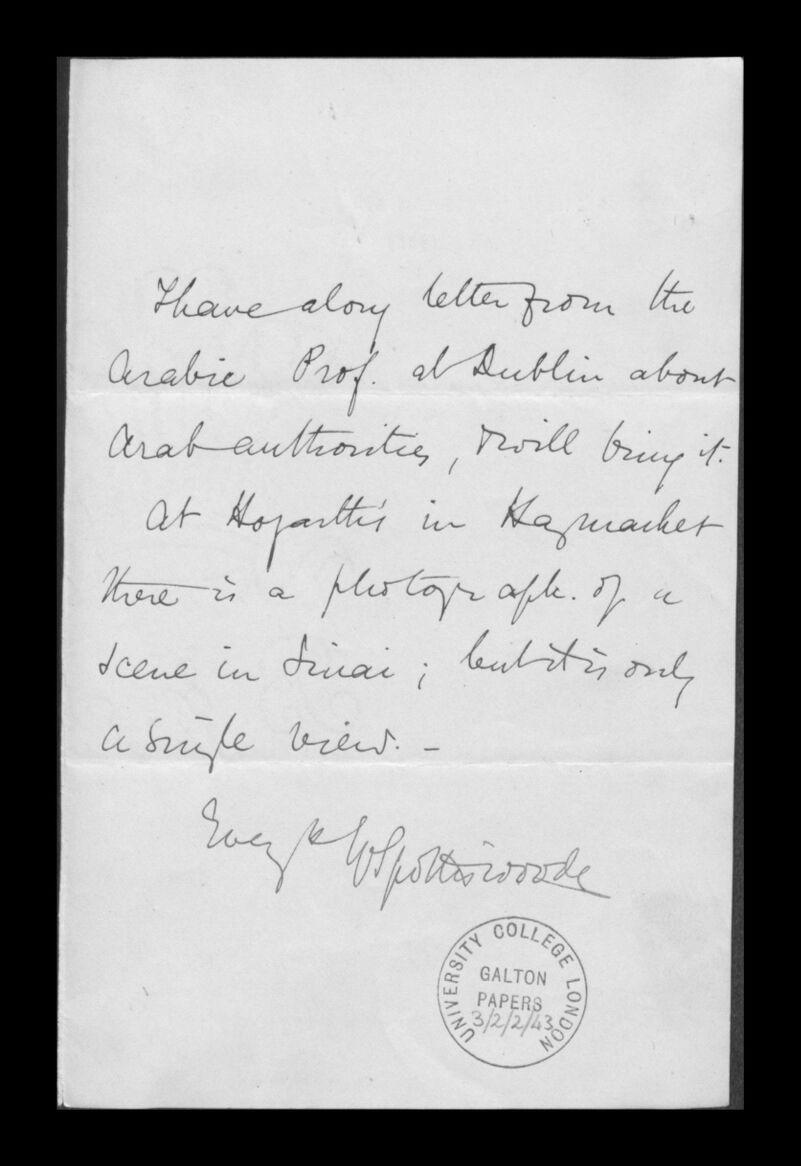 I have a long letter from the
Arabic Prof. at Dublin about
Arab authorities, & will bring it.
At Hogarth's in Haymarket
there is a photograph. of a
scene in Sinai; but it is only
a single view. -
WSpottiswoode
UNIVERSITY COLLEGE LONDON
GALTON
PAPERS
3/2/2/43